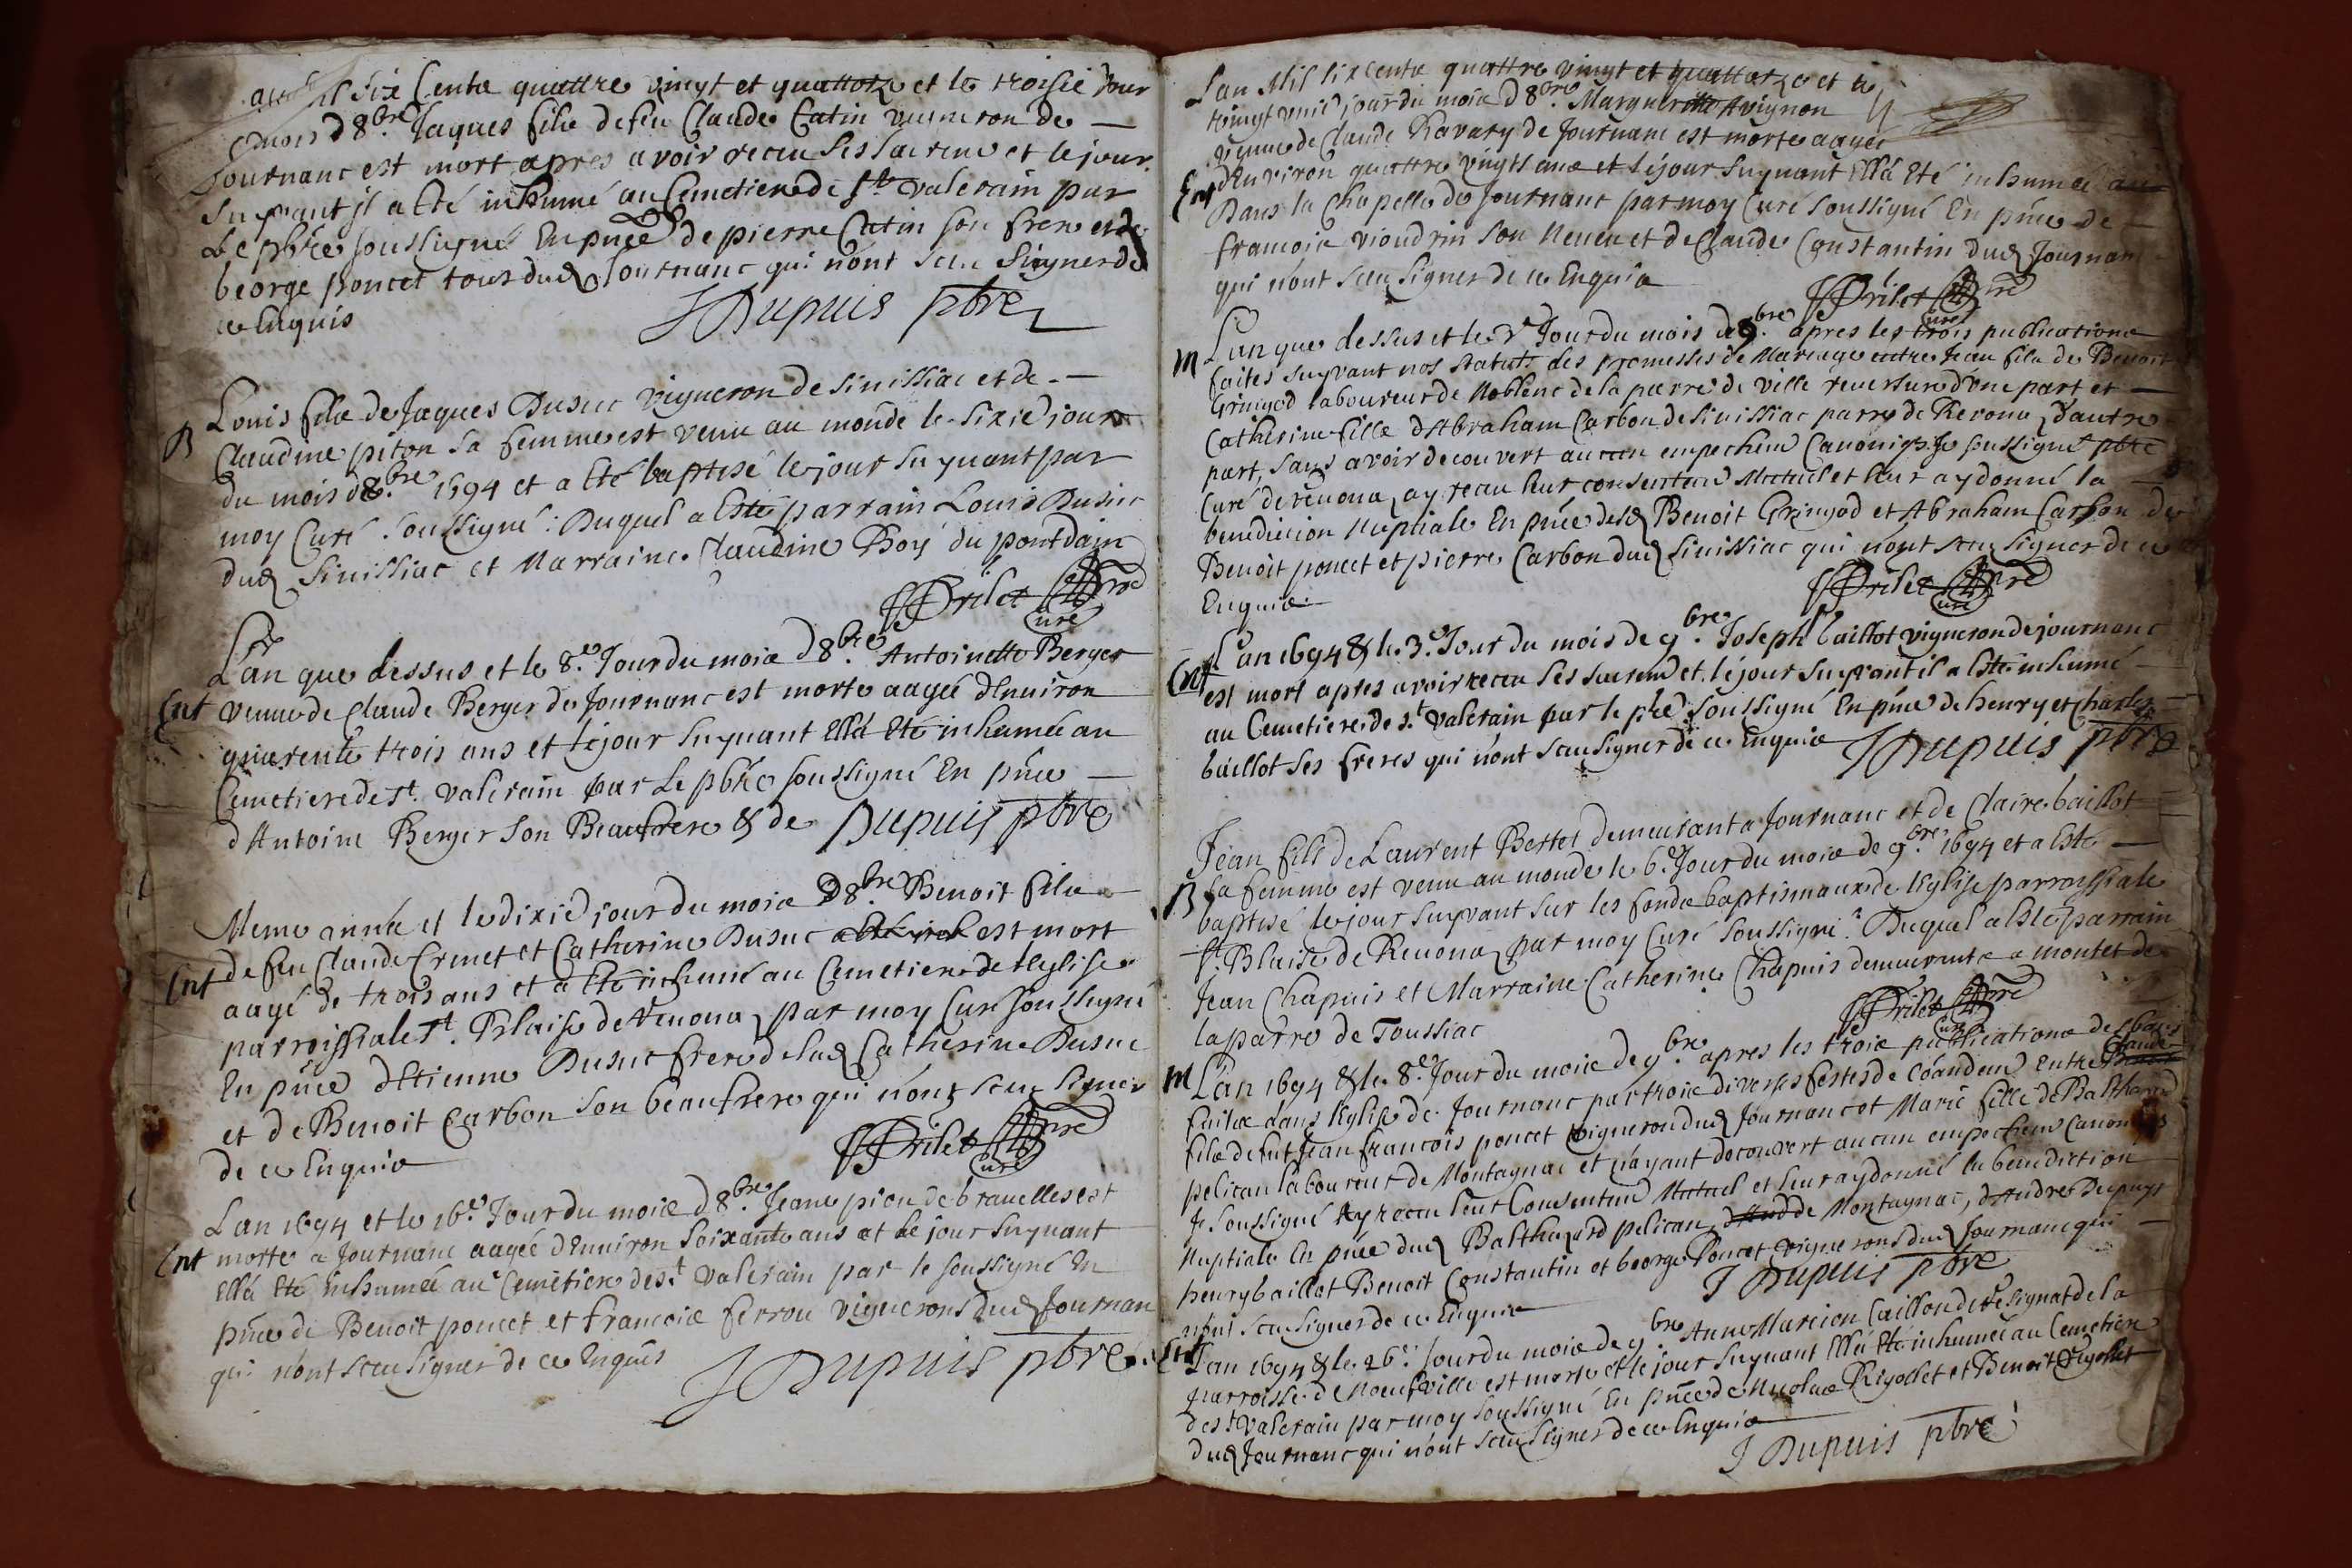 six Cents quattre vingt et quattorze et le troisie Jour
mois d 8.bre Jaques fils de feu Claude Catin vigneron de —
Journanc est mort apres avoir receu ses sacrem et le jour
suyvant jl a Eté inhumé au Cemetiere de st valerain par
Le pbre soussigné En pnce de pierre Catin son frere et de
George poncet tous dud Journanc qui n'ont sceu Signer de
ce Enquis
J Dupuis pbre
B Louis fils de Jaques Dusuc vigneron de Sinissiac et de —
Claudine piton sa femme est venu au monde le sixie jour
du mois d 8.bre 1694 et a Eté baptisé le jour suyvant par
moy Curé soussigné : Duquel a Esté parrain Louis Dusuc
dud Sinissiac et Marraine Claudine Boy du pont dain
Prilet pre
Curé
L'an que dessus et le 8.e Jour du mois d 8.bre Antoinette Berger
Ent veuve de Claude Berger de Journanc est morte aagée d'Environ
quarente trois ans et le jour suyvant Ell'a Eté inhumée au
Cemetiere de st. valerain par Le pbre soussigné En pnce —
d'Antoine Berger son Beaufrere & de Dupuis pbre
Meme année et le dixie jour du mois d 8.bre Benoit fils
Ent de feu Claude Ermet et Catherine Dusuc est mort
aagé de trois ans et a Eté inhumé au Cemetiere de l'Eglise
parroissiale st. Blaise de Revona par moy Curé soussigné
En pnce d'Etienne Dusuc frere de lad Catherine Dusuc
et de Benoit Carbon son beaufrere qui n'ont sceu signer
de ce Enquis
Prilet pre
Curé
L'an 1694 et le 16.e Jour du mois d 8.bre Jeane pion de bravelles est
Ent morte a Journanc aagée d'Environ soixante ans et le jour suyvant
Ell'a Eté Enhumée au Cemetiere de s.t valerain par le soussigné En
pnce de Benoit poncet et francois ferrou vignerons dud Journan
qui n'ont sceu signer de ce Enquis
J Dupuis pbre
L'an Mil six cents quattre vingt et quattorze et le
vingt unie jour du mois d 8.bre Margueritte Avignon
veuve de Claude Ravary de Journanc est morte aagée
Ent d'Environ quattre vingts ans et le jour suyvant Ell'a Eté inhumée
Dans la Chapelle de Journanc par moy Curé soussigné En pnce de —
francois vioudrin son Neveu et de Claude Constantin dud Journan
qui n'ont sceu signer de ce Enquis
Prilet pre
Curé
M L'an que dessus et le 3.e Jour du mois de 9.bre apres les trois publications
faites suyvant nos statuts des promesses de Mariage entre Jean fils de Benoit
Gringod laboureur de Noblens de la parre de ville reversure d'une part, et —
Catherine fille d'Abraham Carbon de Sinissiac parre de Revona d'autre
part, sans avoir decouvert aucun empechem Canoniq. Je soussigné pbre
Curé de revona, ay receu leur consentem Mutuel et leur ay donné la —
benediction Nuptiale En pnce desd Benoit Gringod et Abraham Carbon de
Benoit poncet et pierre Carbon dud Sinissiac qui n'ont sceu signer de ce
Enquis
Prilet pre
Curé
L'an 1694 & le 3.e Jour du mois de 9.bre Joseph baillot vigneron de journanc
Ent est mort apres avoir receu ses sacrem et le jour suyvant il a Esté inhumé —
au Cemetiere de s.t valerain par le pbre soussigné En pnce de henry et Charles
baillot ses freres qui n'ont sceu signer de ce Enquis J Dupuis pbre
Jean fils de Laurent Bertet demeurant a Journanc et de Claire baillot
B sa femme est venu au monde le 6.e Jour du mois de 9.bre 1694 et a Esté —
baptisé le jour suyvant sur les fonds baptismaux de l'Eglise parroissiale
st. Blaise de Revona par moy Curé soussigné. Duquel a Esté parrain
Jean Chapuis et Marraine Catherine Chapuis demeurants a montet de
la parre de Toussiac
Prilet pre
Curé
M L'an 1694 & le 8.e Jour du mois de 9.bre apres les trois publications des bans
faites dans l'Eglise de Journanc par trois diverses festes de Coandem Entre Claude
fils de fut Jean francois poncet vigneron dud Journanc et Marie fille de Balthazard
pelican laboureur de Montagnac et n'ayant decouvert aucun empechem Canoniq
Je soussigné ay receu leur Consentem Mutuel et leur ay donné la benediction
Nuptiale En pnce dud Balthazard pelican, de Montagnac, d'Andre Dupuys
henry baillot Benoit Constantin et George Poncet vignerons dud Journanc qui —
n'ont sceu signer de ce Enquis
J Dupuis pbre
Ent L'an 1694 & le 26.e Jour du mois de 9.bre Anne Marion Caillon de Resignat de la
parroisse de Noeufville est morte et le jour suyvant Ell'a Eté inhumée au Cemetiere
de s.t Valerain par moy soussigné En pnce de Nicolas Rigollet et Benoit Rigollet
dud Journanc qui n'ont sceu signer de ce Enquis
J Dupuis pbre